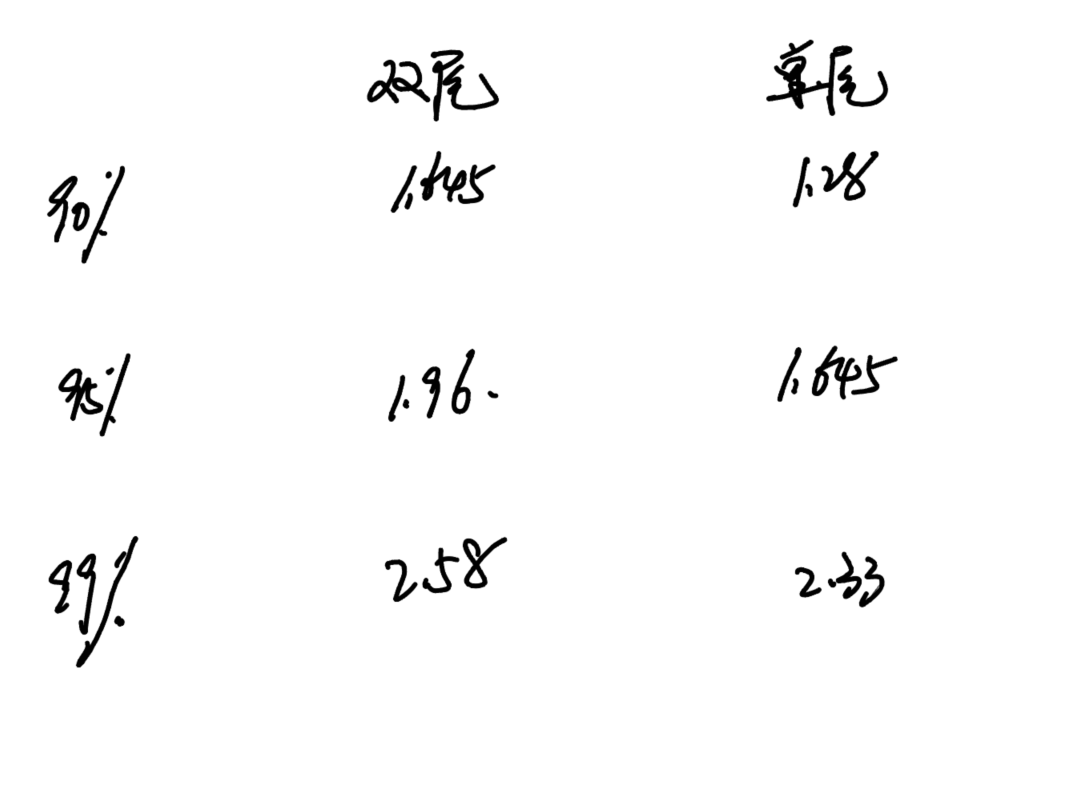 双尾 单尾
90% 1.645 1.28
95% 1.96. 1.645
99% 2.58 2.33